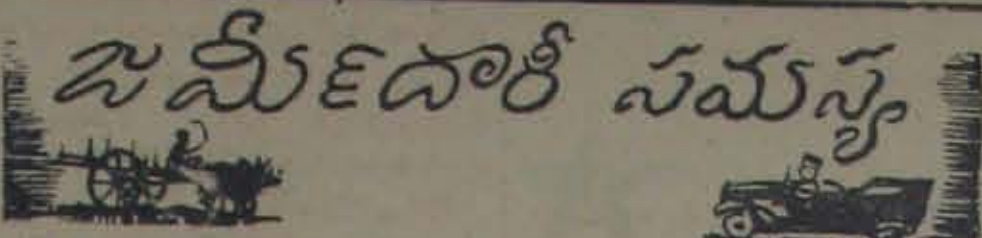 జమీ౯దారీ సమస్య